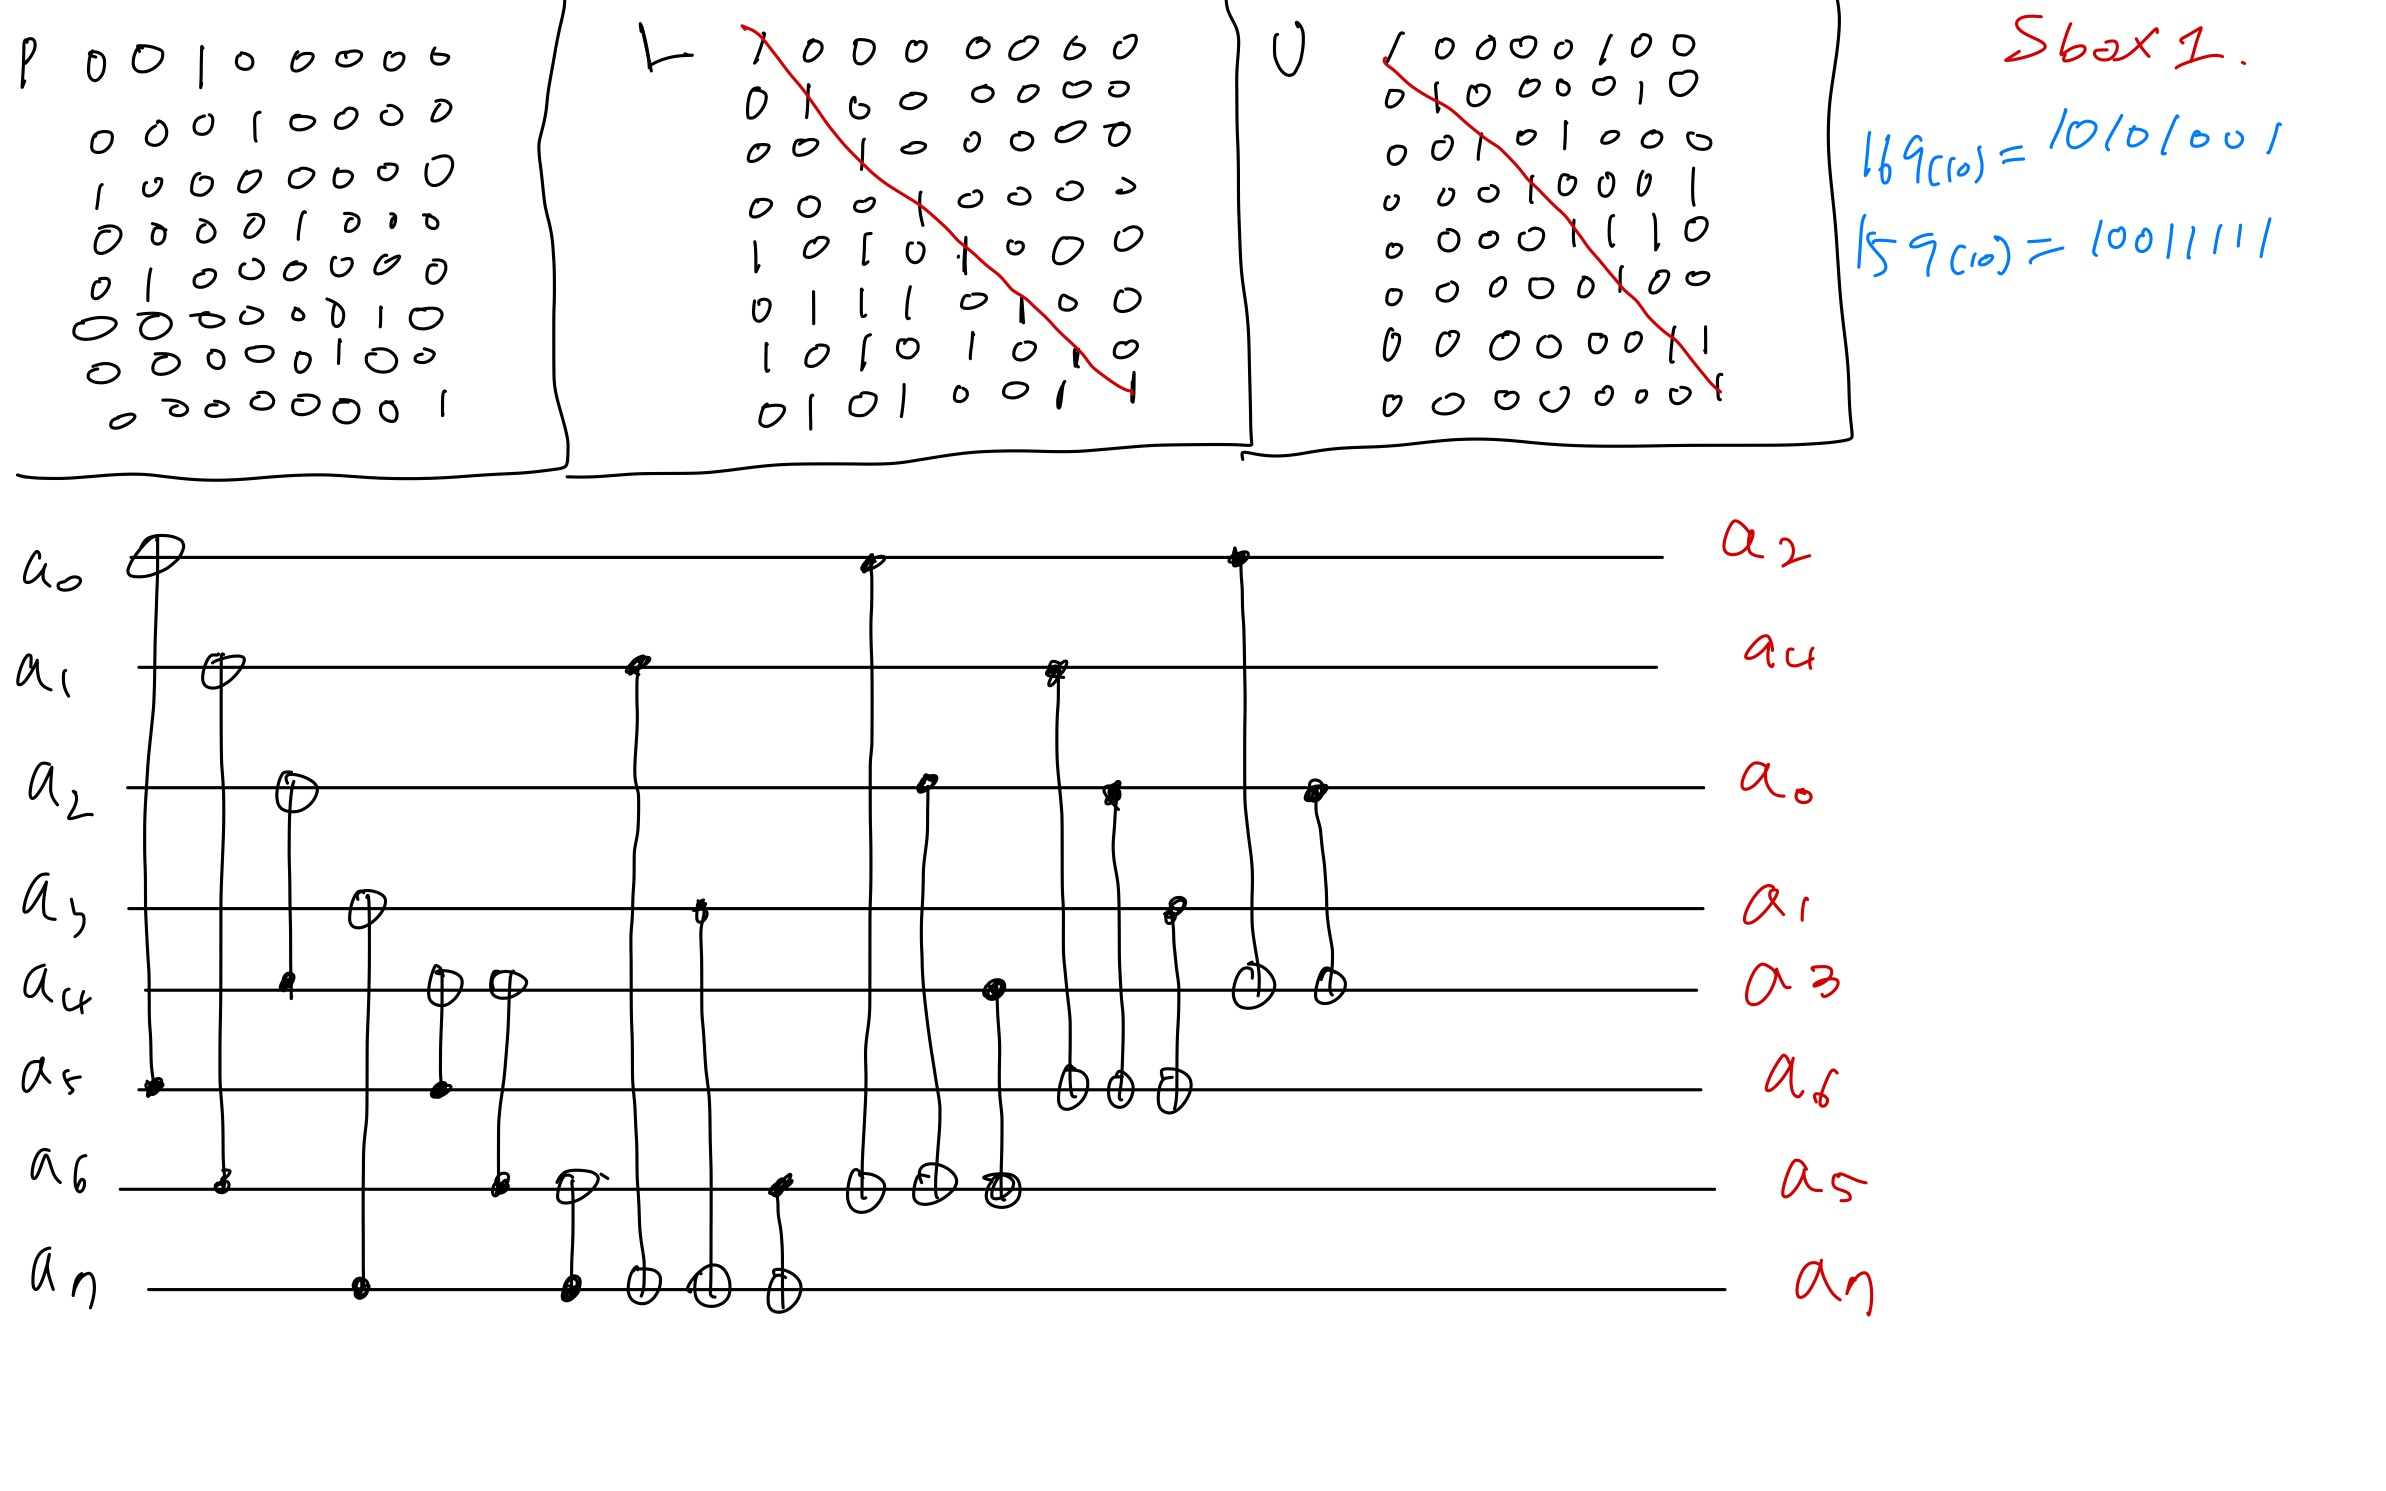 P 0 0 1 0 0 0 0 0
0 0 0 1 0 0 0 0
1 0 0 0 0 0 0 0
0 0 0 0 1 0 0 0
0 1 0 0 0 0 0 0
0 0 0 0 0 0 1 0
0 0 0 0 0 1 0 0
0 0 0 0 0 0 0 1
L 1 0 0 0 0 0 0 0
0 1 0 0 0 0 0 0
0 0 1 0 0 0 0 0
0 0 0 1 0 0 0 0
1 0 1 0 1 0 0 0
0 1 1 1 0 1 0 0
1 0 1 0 1 0 1 0
0 1 0 1 0 0 1 1
U 1 0 0 0 0 1 0 0
0 1 0 0 0 0 1 0
0 0 1 0 1 0 0 0
0 0 0 1 0 0 0 1
0 0 0 0 1 1 1 0
0 0 0 0 0 1 0 0
0 0 0 0 0 0 1 1
0 0 0 0 0 0 0 1
Sbox1.
169(10) = 10101001
159(10) = 10011111
a0 a2
a1 a4
a2 a0
a3 a1
a4 a3
a5 a6
a6 a5
a7 a7